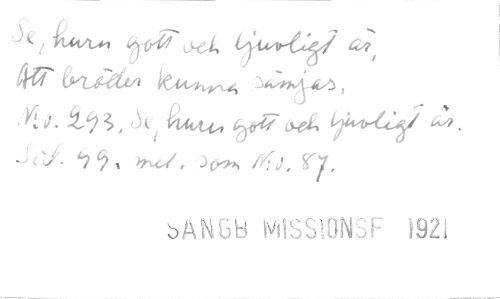 Se, huru gott och ljuvligt är,
Att bröder kunna sämjas.
N:o. 293. Se, huru gott och ljuvligt är.
Sid. 99. mel. som N:o. 87.
SÅNGB MISSIONSF 1921